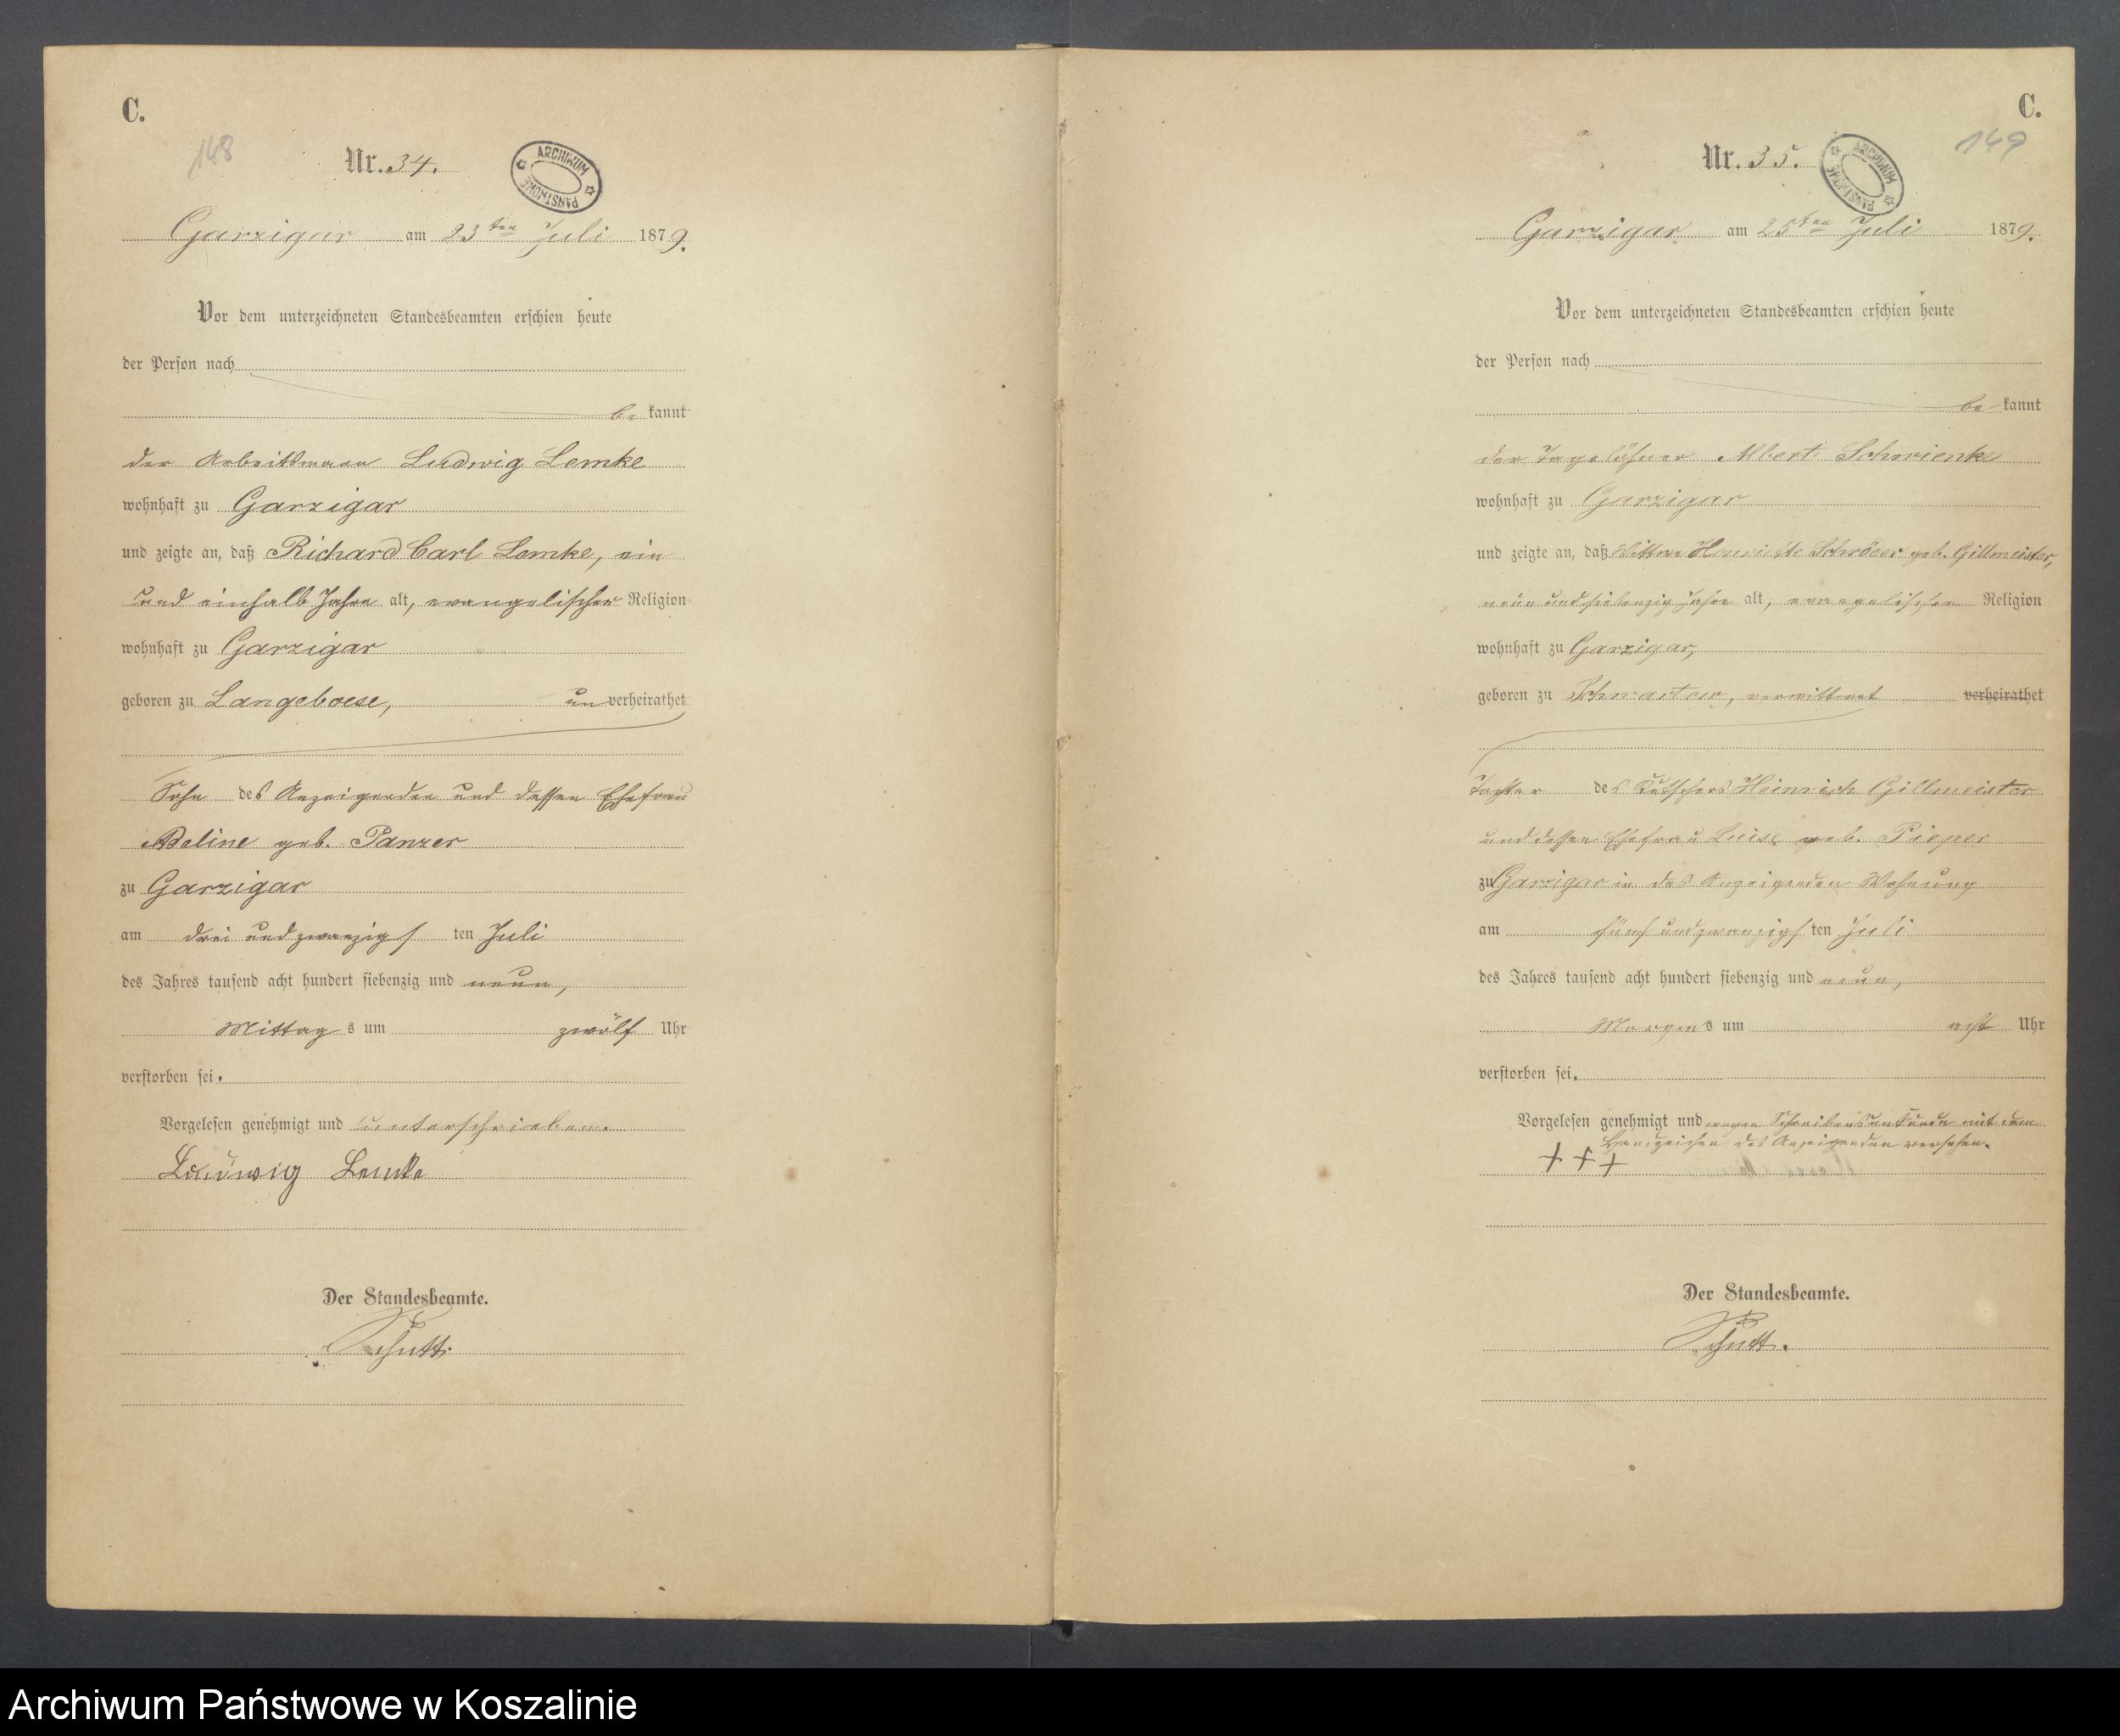 C.
148
Nr. 34.
ARCHIWUM PAŃSTWOWE
Garzigar am 23ten Juli 1879.
Vor dem unterzeichneten Standesbeamten erschien heute
der Person nach
be kannt
der Arbeitsmann Ludwig Lemke
wohnhaft zu Garzigar
und zeigte an, daß Richard Carl Lemke, ein
und einhalb Jahre alt, evangelischer Religion
wohnhaft zu Garzigar
geboren zu Langeboese, un verheirathet
Sohn des Anzeigenden und dessen Ehefrau
Adeline geb. Panzer
zu Garzigar
am drei und zwanzigs ten Juli
des Jahres tausend acht hundert siebenzig und neun,
Mittag s um zwölf Uhr
verstorben sei.
Vorgelesen genehmigt und unterschrieben.
Ludwig Lemke
Der Standesbeamte.
Schutt.
C.
149
Nr. 35.
ARCHIWUM PAŃSTWOWE
Garzigar am 25ten Juli 1879.
Vor dem unterzeichneten Standesbeamten erschien heute
der Person nach
be kannt
der Tagelöhner Albert Schwienke
wohnhaft zu Garzigar
und zeigte an, daß Wittwe Henriette Schröer geb. Gillmeister,
neun und siebenzig Jahre alt, evangelischer Religion
wohnhaft zu Garzigar,
geboren zu Schwartow, verwittwet verheirathet
Tochter des Kutschers Heinrich Gillmeister
und dessen Ehefrau Luise geb. Pieper
zu Garzigar in des Anzeigenden Wohnung
am fünf und zwanzigs ten Juli
des Jahres tausend acht hundert siebenzig und neun,
Morgen s um acht Uhr
verstorben sei.
Vorgelesen genehmigt und wegen Schreibensunkunde mit dem
Handzeichen des Anzeigenden versehen.
+ + +
Der Standesbeamte.
Schutt.
Archiwum Państwowe w Koszalinie